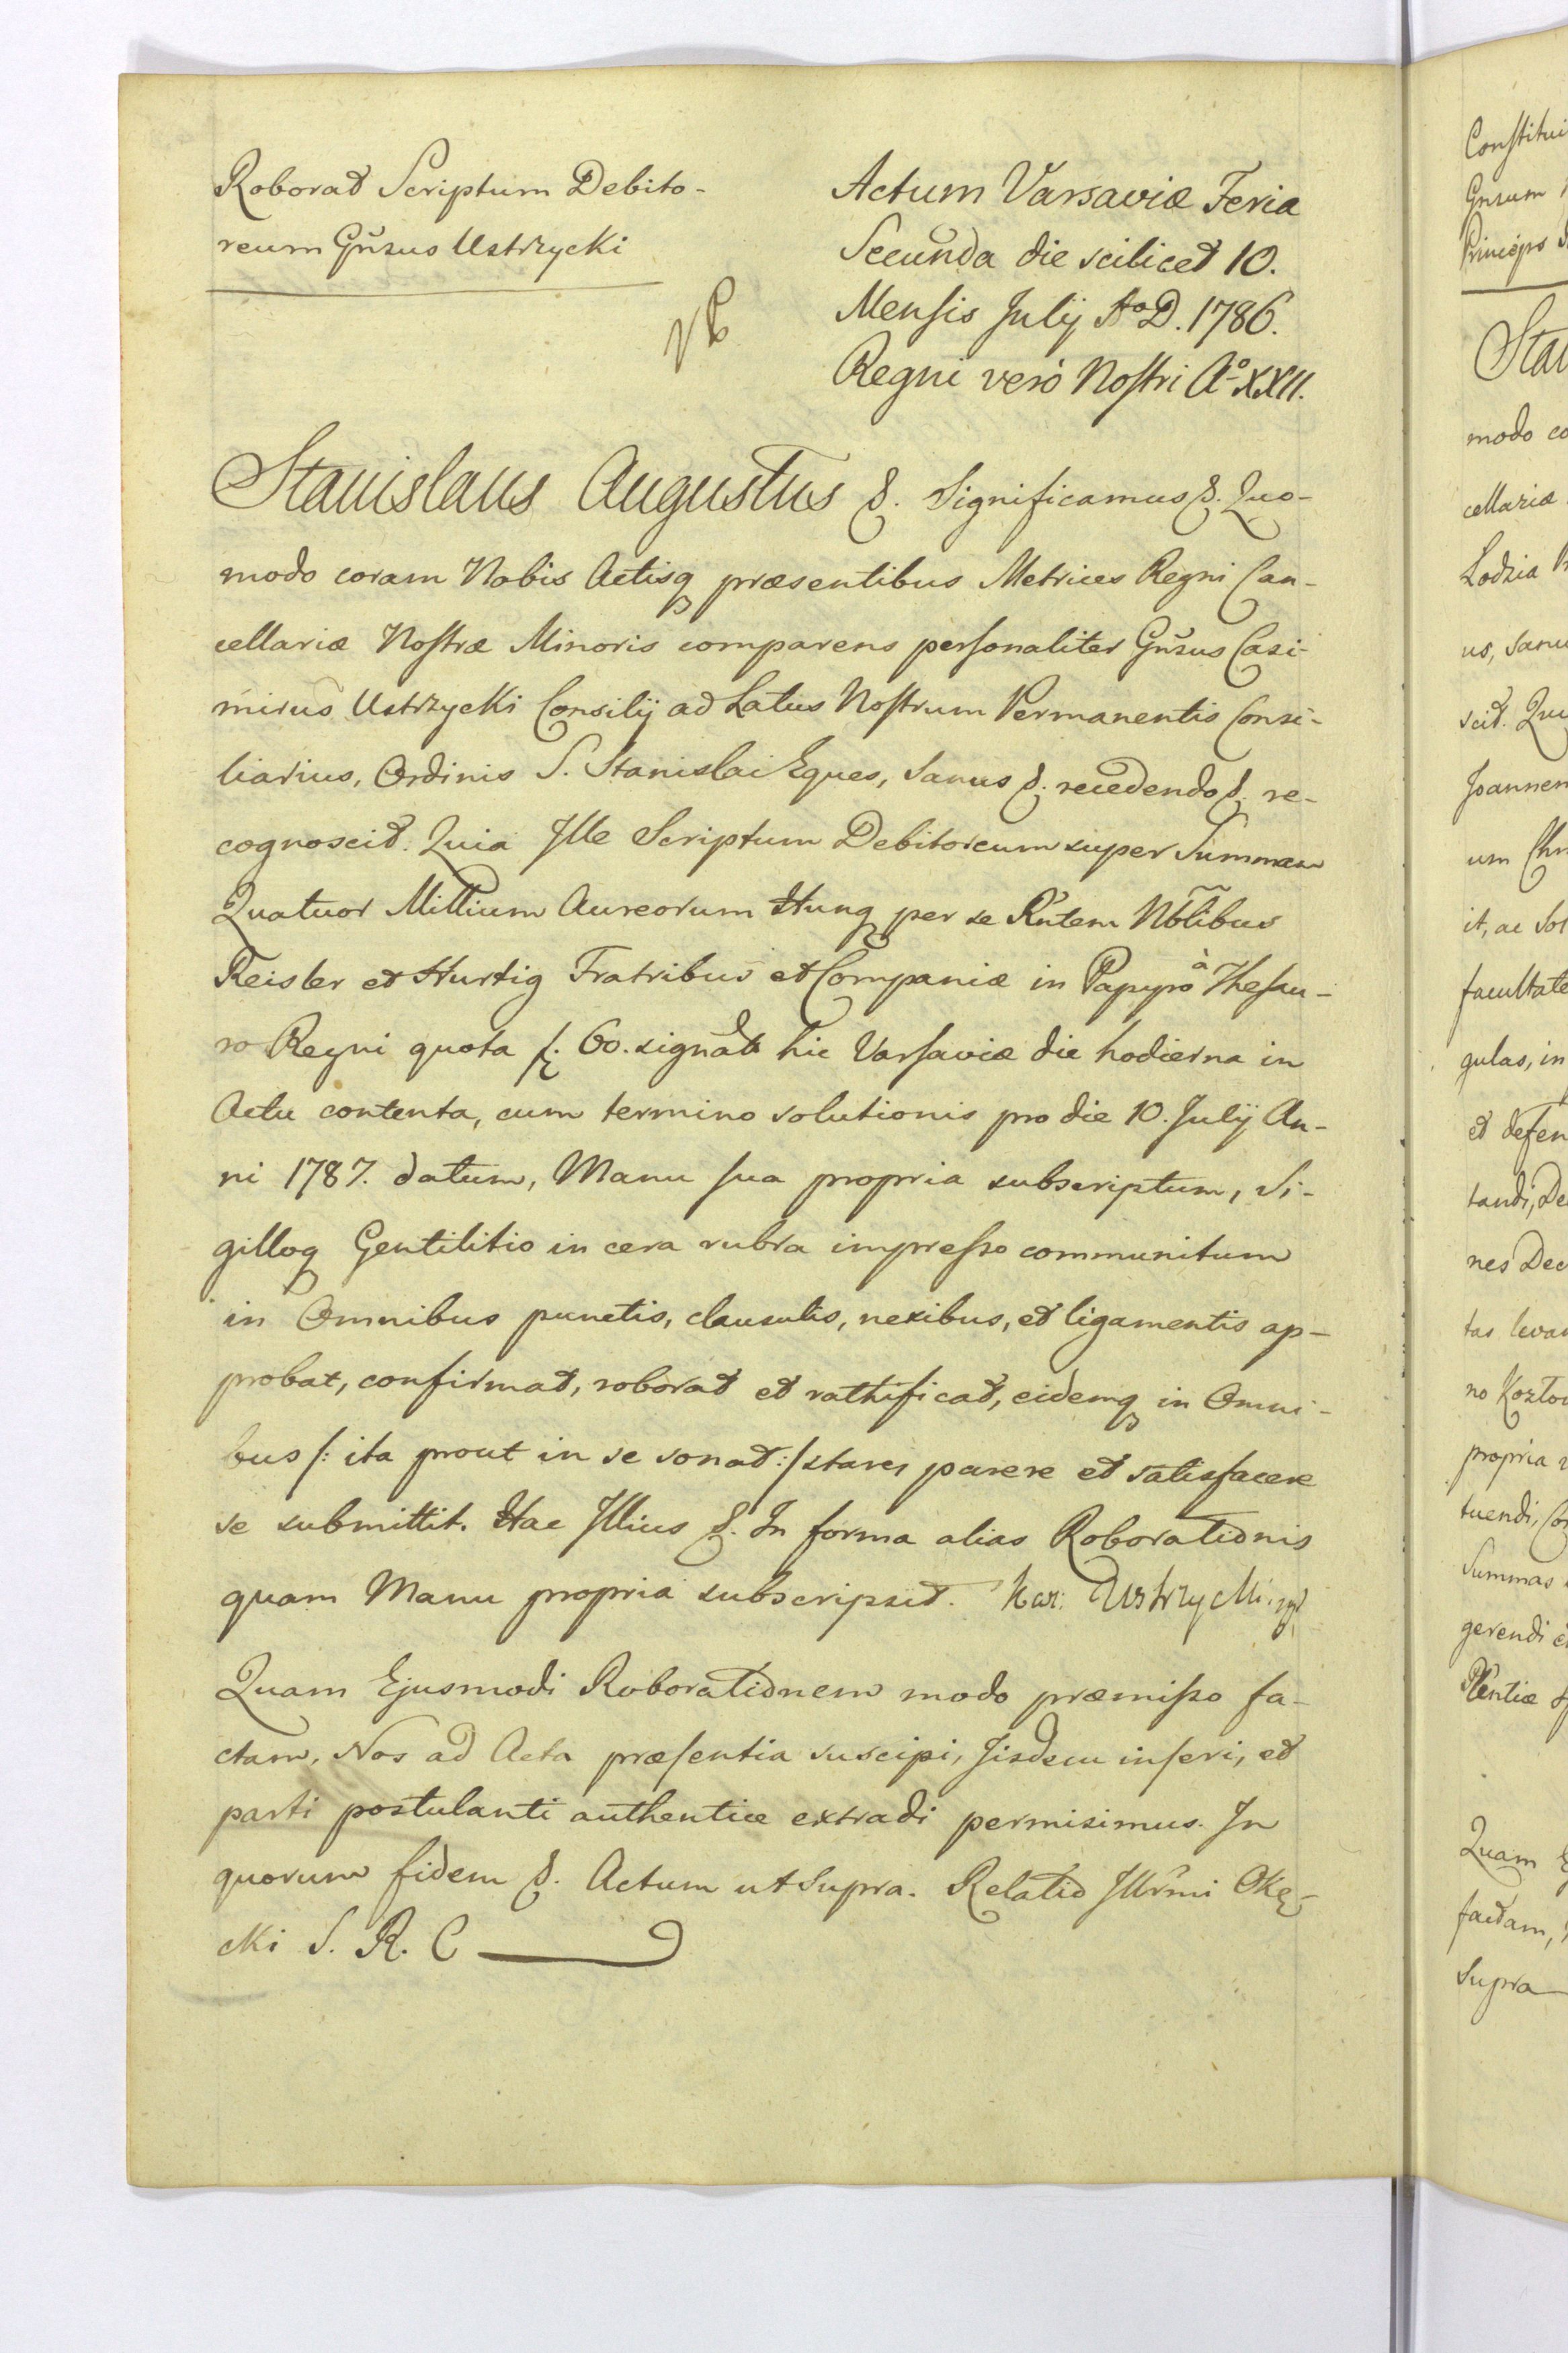 Roborat Scriptum Debito-
reum Gnsus Ustrzycki
Actum Varsaviæ Feria
Secunda die scilicet 10.
Mensis Julij Ao D. 1786.
Regni verò Nostri Ao XXII.
Stanislaus Augustus &. Significamus &. Quo-
modo coram Nobis Actisq præsentibus Metrices Regni Can-
cellariæ Nostræ Minoris comparens personaliter Gnsus Casi-
mirus Ustrzycki Consilij ad Latus Nostrum Permanentis Consi-
liarius, Ordinis S. Stanislai Eques, Sanus &. recedendo &. re-
cognoscit. Quia Ille Scriptum Debitoreum super Summam
Quatuor Millium Aureorum Hung per se Rntem Nblibus
Reisler et Hurtig Fratribus et Companiæ in Papyro à Thesau-
ro Regni quota f. 60. signata hic Varsaviæ die hodierna in
Actu contenta, cum termino solutionis pro die 10. Julij An-
ni 1787. datum, Manu sua propria subscriptum, Si-
gilloq Gentilitio in cera rubra impresso communitum
in Omnibus punctis, clausulis, nexibus, et ligamentis ap-
probat, confirmat, roborat et rathificat, eidemq in Omni-
bus /: ita prout in se sonat :/ stare, parere et satisfacere
se submittit. Hac Illius &. In forma alias Roborationis
quam Manu propria subscripsit. Kaz: Ustrzycki mp
Quam Ejusmodi Roborationem modo præmisso fa-
ctam, Nos ad Acta præsentia suscipi, Iisdem inseri, et
parti postulanti authentice extradi permisimus. In
quorum fidem &. Actum ut Supra. Relatio Illrmi Okę-
cki S. R. C
Constitui
Gnsum
Princips
Sta
modo co
cellariæ
Lodzia
us, Sanu
scit. Qui
Joannem
um Chr
it, ac Sol
facultate
gulas, in
et defen
tandi, De
nes Dec
tas leva
no Kozło
propria
tuendi, Co
Summas
gerendi e
Plentiæ
Quam E
factam,
Supra